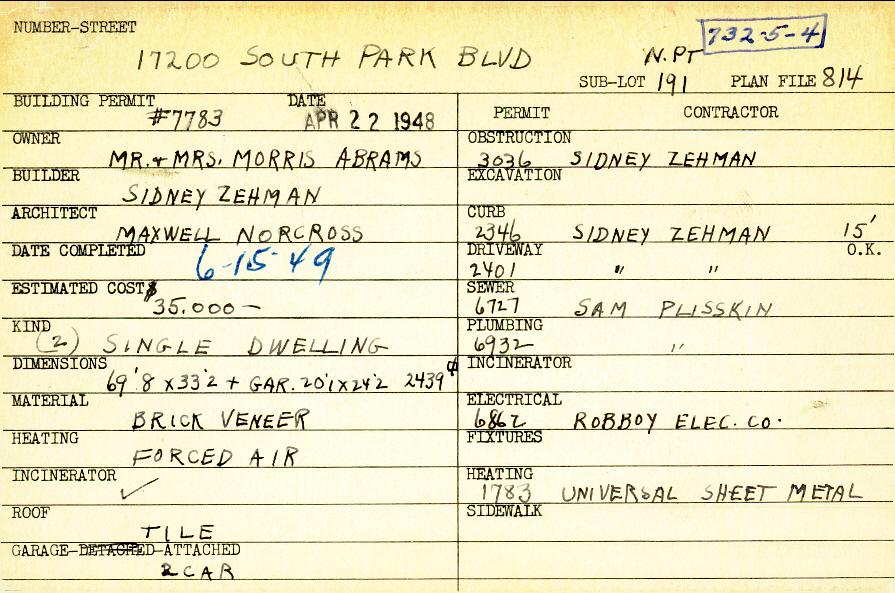 NUMBER-STREET
732-5-4
17200 SOUTH PARK BLVD N.PT
SUB-LOT 191 PLAN FILE 814
BUILDING PERMIT DATE
#7783 APR 22 1948
OWNER
MR. & MRS. MORRIS ABRAMS
BUILDER
SIDNEY ZEHMAN
ARCHITECT
MAXWELL NORCROSS
DATE COMPLETED
6-15-49
ESTIMATED COST $
35.000 —
KIND
(2) SINGLE DWELLING
DIMENSIONS
69'8 X 33'2 + GAR. 20'1 X 24'2 2439
MATERIAL
BRICK VENEER
HEATING
FORCED AIR
INCINERATOR
✓
ROOF
TILE
GARAGE-DETACHED-ATTACHED
2 CAR
PERMIT CONTRACTOR
OBSTRUCTION
3036 SIDNEY ZEHMAN
EXCAVATION
CURB
2346 SIDNEY ZEHMAN 15'
DRIVEWAY O.K.
2401 " "
SEWER
6727 SAM PLISSKIN
PLUMBING
6932 "
INCINERATOR
ELECTRICAL
6862 ROBBOY ELEC. CO.
FIXTURES
HEATING
1783 UNIVERSAL SHEET METAL
SIDEWALK